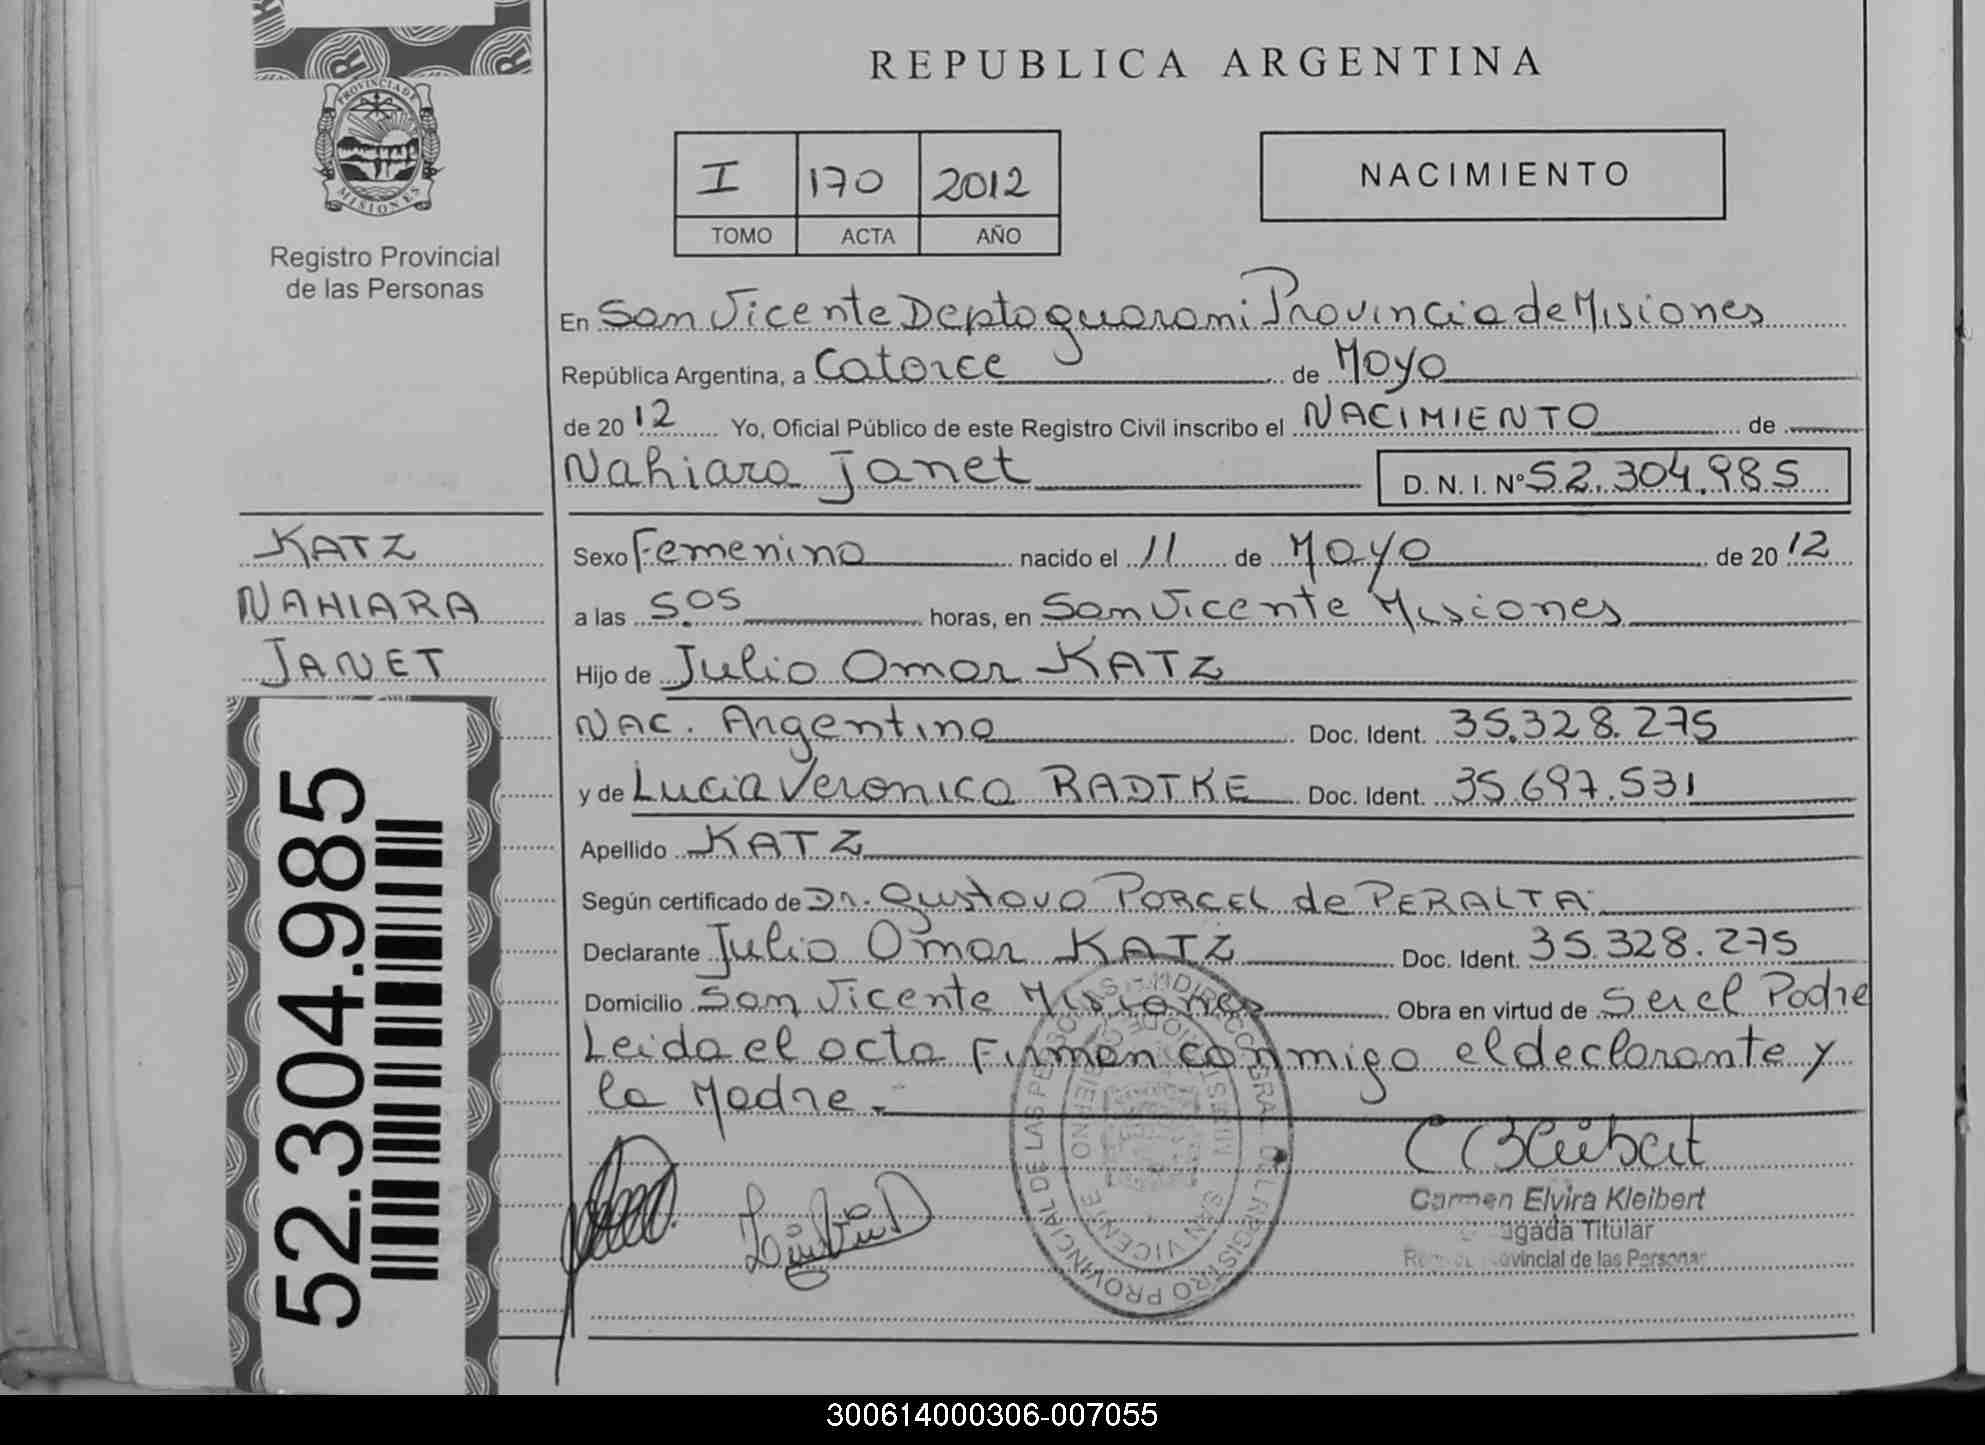 PROVINCIA DE
MISIONES
Registro Provincial
de las Personas
REPUBLICA ARGENTINA
I 170 2012
TOMO ACTA AÑO
NACIMIENTO
En San Vicente Depto guarani Provincia de Misiones
República Argentina, a Catorce de Mayo
de 2012 Yo, Oficial Público de este Registro Civil inscribo el NACIMIENTO de
Nahiara Janet D. N. I. Nº 52.304.985
KATZ
NAHIARA
JANET
Sexo Femenino nacido el 11 de Mayo de 2012
a las 5.05 horas, en San Vicente Misiones
Hijo de Julio Omar KATZ
NAC. Argentino Doc. Ident. 35.328.275
y de Lucia Veronica RADTKE Doc. Ident. 35.697.531
Apellido KATZ
Según certificado de Dr. Gustavo PORCEL de PERALTA
Declarante Julio Omar KATZ Doc. Ident. 35.328.275
Domicilio San Vicente Misiones Obra en virtud de Ser el Padre
Leida el acta Firman conmigo el declarante y
la Madre.
52.304.985
REGISTRO PROVINCIAL DE LAS PERSONAS
SAN VICENTE
Carmen Elvira Kleibert
Titular
Provincial de las Personas
300614000306-007055